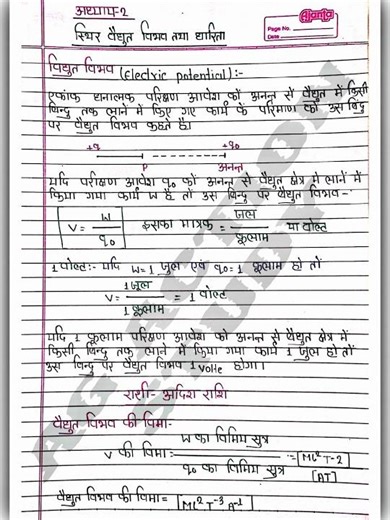 अध्याय-2
Ajanta
Page No.
Date
स्थिर वैद्युत विभव तथा धारिता
विद्युत विभव (Electric potential):-
एकांक धनात्मक परिक्षण आवेश को अनन्त से वैद्युत में किसी
बिन्दु तक लाने में किए गए कार्य के परिमाण को उस बिंदु
पर वैद्युत विभव कहते है।
+q +q₀
P अनन्त
यदि परीक्षण आवेश q₀ को अनन्त से वैद्युत क्षेत्र में लाने में
किया गया कार्य W है तो उस बिन्दु पर वैद्युत विभव-
V = W/q₀ इसका मात्रक = जूल/कूलाम या वोल्ट
1 वोल्ट:- यदि W=1 जुल एवं q₀=1 कूलाम हो तो
V = 1 जूल/1 कूलाम = 1 वोल्ट
यदि 1 कूलाम परिक्षण आवेश को अनन्त से वैद्युत क्षेत्र में
किसी बिन्दु तक लाने में किया गया कार्य 1 जुल हो तो
उस बिंदु पर वैद्युत विभव 1 volte होगा।
राशी- अदिश राशि
वैद्युत विभव की विमा-
V की विमा = W का विमिय सुत्र/q₀ का विमिय सुत्र = [ML²T-2]/[AT]
वैद्युत विभव की विमा = [ML²T⁻³A⁻¹]
AG ACTION STUDY